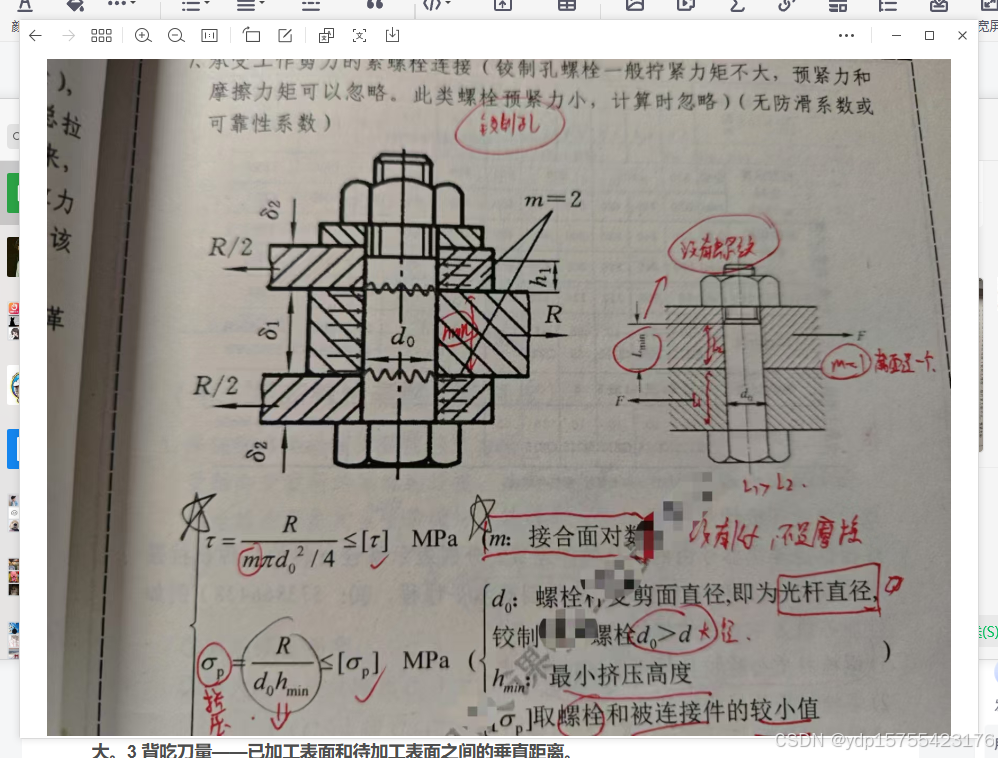 1. 承受工作剪力的紧螺栓连接（铰制孔螺栓一般拧紧力矩不大，预紧力和
摩擦力矩可以忽略。此类螺栓预紧力小，计算时忽略）（无防滑系数或
可靠性系数）
铰制孔
总拉
来，
力
该
革
δ2
R/2
m=2
h1
δ1
d0
R
R/2
δ2
没有螺纹
Lmin
F
m=1
F
d0
L1>L2.
τ= R / mπd0²/4 ≤[τ] MPa
m：接合面对数
σp= R / d0hmin ≤[σp] MPa (
挤压
d0：螺栓杆受剪面直径,即为光杆直径,
铰制 螺栓d0>d 大径.
hmin：最小挤压高度
)
[σp]取螺栓和被连接件的较小值
大。3 背吃刀量——已加工表面和待加工表面之间的垂直距离。
CSDN @ydp15755423176